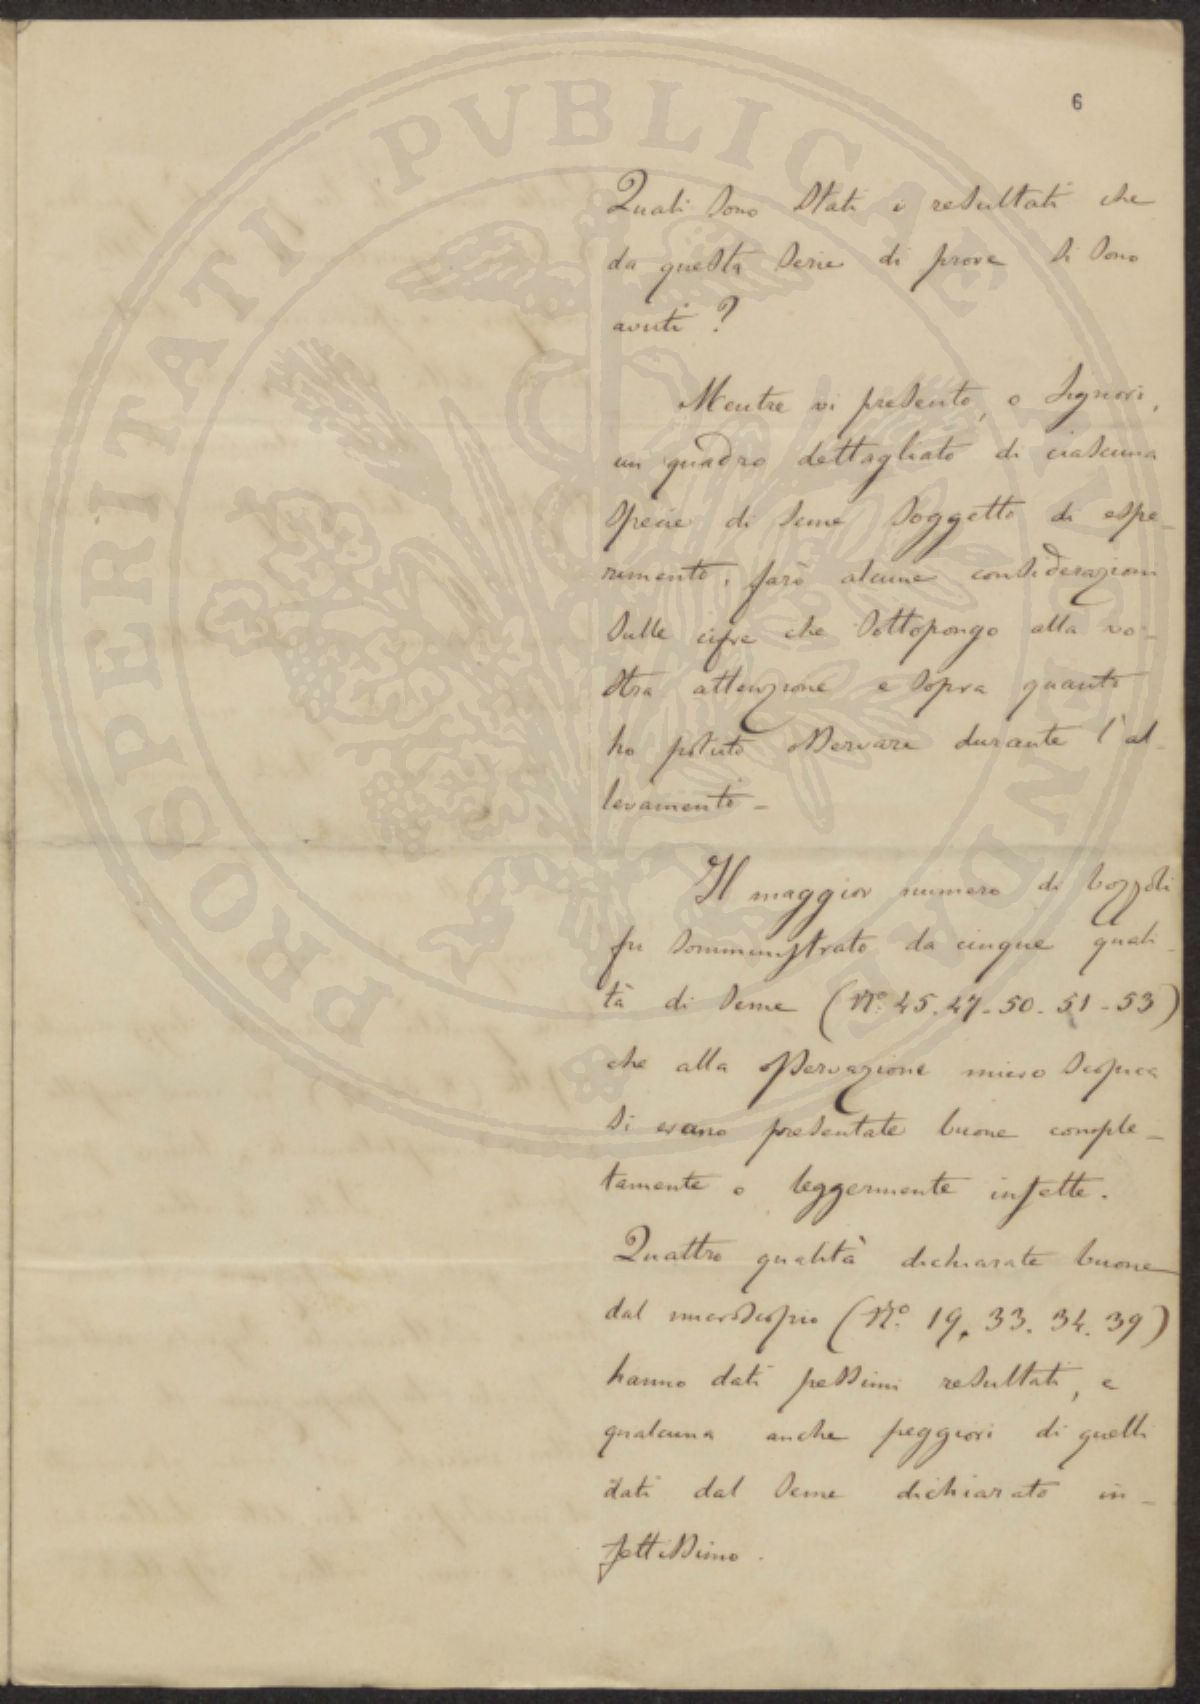 PROSPERITATI PUBLICAE AUGENDAE
6
Quali sono stati i resultati che
da questa serie di prove si sono
avuti ?
Mentre vi presento, o Signori,
un quadro dettagliato di ciascuna
specie di seme soggetto di espe-
rimento, farò alcune considerazioni
sulle cifre che sottopongo alla vo-
stra attenzione e sopra quanto
ho potuto osservare durante l'al-
levamento -
Il maggior numero di bozzoli
fu somministrato da cinque quali-
tà di seme (N.º 45. 47 - 50 - 51 - 53)
che alla osservazione microscopica
si erano presentate buone comple-
tamente o leggermente infette.
Quattro qualità dichiarate buone
dal microscopio (N.º 19. 33. 34. 39)
hanno dati pessimi resultati, e
qualcuna anche peggiori di quelli
dati dal seme dichiarato in-
fettissimo.